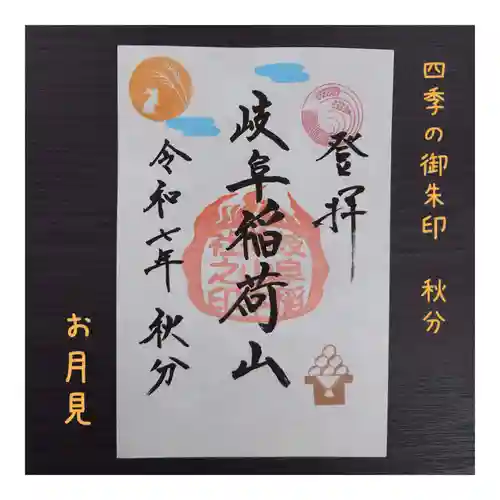 四季の御朱印　秋分
登拝
岐阜稲荷山
令和七年　秋分
お月見